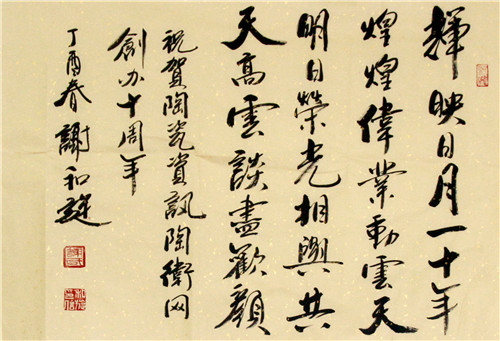 輝映日月一十年
煌煌偉業動雲天
明日榮光相與共
天高雲談盡歡顏
祝賀陶瓷資訊陶衛网
創办十周年
丁酉春謝和